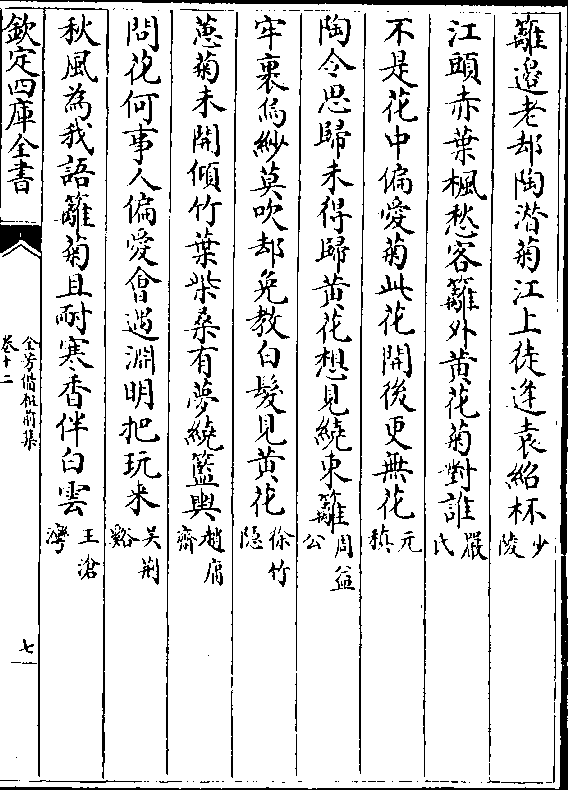 籬邉老却陶潛菊江上徒逢袁紹杯少陵
江頭赤葉楓愁客籬外黄花菊對誰嚴氏
不是花中偏愛菊此花開後更無花元稹
陶令思歸未得歸黄花想見繞東籬周益公
牢裹烏紗莫吹却免教白髮見黄花徐竹隠
蔥菊未開傾竹葉柴桑有夢繞籃輿趙腐齋
問花何事人偏愛曾遇淵明把玩来吴荆谿
秋風為我語籬菊且耐寒香伴白雲王滄灣
欽定四庫全書
全芳備祖前集
卷十二
七